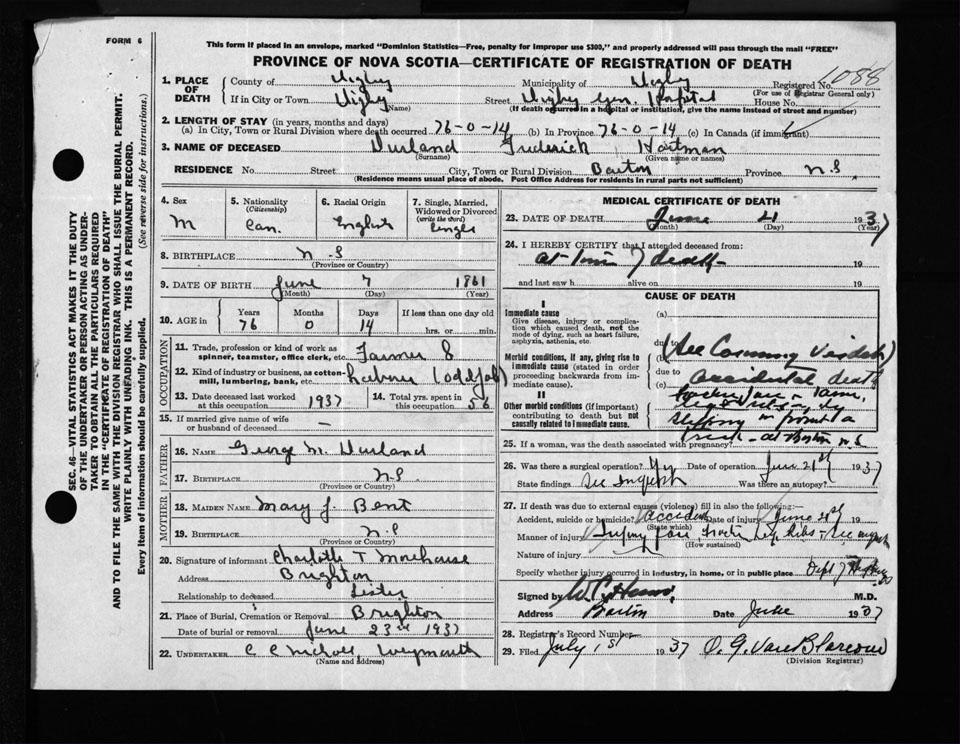 FORM 6
This form if placed in an envelope, marked "Dominion Statistics—Free, penalty for improper use $300," and properly addressed will pass through the mail "FREE"
PROVINCE OF NOVA SCOTIA—CERTIFICATE OF REGISTRATION OF DEATH
6088
1. PLACE OF DEATH
County of Digby Municipality of Digby Registered No.
(For use of Registrar General only)
If in City or Town Digby Street Digby Gen. Hospital House No.
(Name) (If death occurred in a hospital or institution, give the name instead of street and number)
2. LENGTH OF STAY (in years, months and days)
(a) In City, Town or Rural Division where death occurred 76-0-14 (b) In Province 76-0-14 (c) In Canada (if immigrant)
3. NAME OF DECEASED Durland Frederick Hartman
(Surname) (Given name or names)
RESIDENCE No. Street City, Town or Rural Division Barton Province N.S.
(Residence means usual place of abode. Post Office Address for residents in rural parts not sufficient)
SEC. 46—VITAL STATISTICS ACT MAKES IT THE DUTY
OF THE UNDERTAKER OR PERSON ACTING AS UNDER-
TAKER TO OBTAIN ALL THE PARTICULARS REQUIRED
IN THE "CERTIFICATE OF REGISTRATION OF DEATH"
AND TO FILE THE SAME WITH THE DIVISION REGISTRAR WHO SHALL ISSUE THE BURIAL PERMIT.
WRITE PLAINLY WITH UNFADING INK. THIS IS A PERMANENT RECORD.
Every item of information should be carefully supplied. (See reverse side for instructions.)
4. Sex
M
5. Nationality
(Citizenship)
Can.
6. Racial Origin
English
7. Single, Married,
Widowed or Divorced
(write the word)
Single
8. BIRTHPLACE N.S
(Province or Country)
9. DATE OF BIRTH June 7 1861
(Month) (Day) (Year)
10. AGE in
Years Months Days If less than one day
76 0 14 hrs. or min.
OCCUPATION
11. Trade, profession or kind of work as
spinner, teamster, office clerk, etc. Farmer &
12. Kind of industry or business, as cotton-
mill, lumbering, bank, etc.
13. Date deceased last worked
at this occupation 1937
14. Total yrs. spent in
this occupation 56
15. If married give name of wife
or husband of deceased —
FATHER
16. NAME George M. Durland
17. BIRTHPLACE N.S
(Province or Country)
MOTHER
18. MAIDEN NAME Mary J. Bent
19. BIRTHPLACE N.S
(Province or Country)
20. Signature of informant Charlotte T Morehouse
Address Brighton
Relationship to deceased Sister
21. Place of Burial, Cremation or Removal Brighton
Date of burial or removal June 23rd 1937
22. UNDERTAKER C C Nichols Weymouth
(Name and address)
MEDICAL CERTIFICATE OF DEATH
23. DATE OF DEATH June 21 1937
(Month) (Day) (Year)
24. I HEREBY CERTIFY that I attended deceased from:
at time of death 19
and last saw h alive on 19
CAUSE OF DEATH
I
Immediate cause
Give disease, injury or complica-
tion which caused death, not the
mode of dying, such as heart failure,
asphyxia, asthenia, etc.
Morbid conditions, if any, giving rise to
immediate cause (stated in order
proceeding backwards from im-
mediate cause).
II
Other morbid conditions (if important)
contributing to death but not
causally related to immediate cause.
(a)
due to
(b) (See Coroners Verdict)
due to accidental death
(c)
slipping in front of a
truck - at Barton N.S
25. If a woman, was the death associated with pregnancy?
26. Was there a surgical operation? Yes Date of operation June 21st 1937
State findings See Inquest Was there an autopsy?
27. If death was due to external causes (violence) fill in also the following:—
Accident, suicide or homicide? accident Date of injury June 21st 19
(State which)
Manner of injury Injury face, Fractr leg, Ribs,
(How sustained)
Nature of injury
Specify whether injury occurred in industry, in home, or in public place
Signed by M.D.
Address Barton Date June 1937
28. Registrar's Record Number
29. Filed July 1st 1937 O. G. Van Blarcom
(Division Registrar)